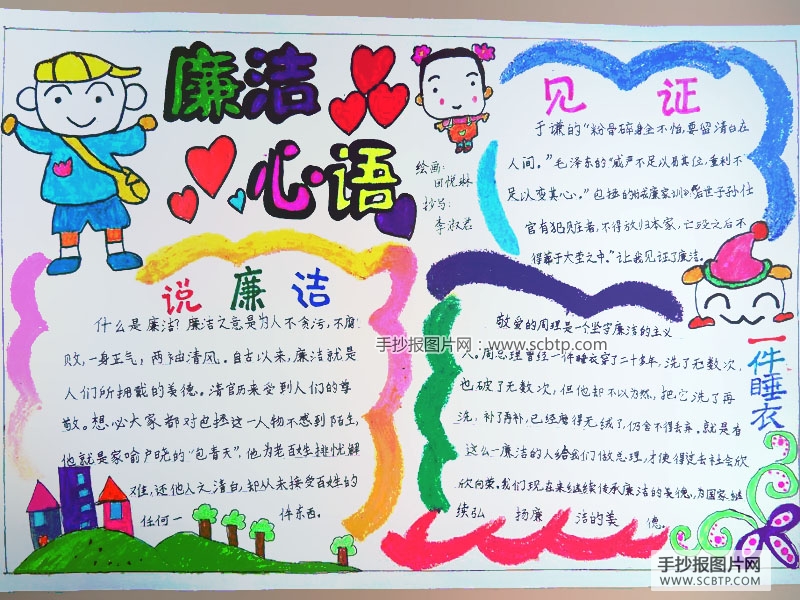 廉洁
心语
绘画:
田悦琳
抄写:
李淑君
见证
于谦的“粉骨碎身全不怕,要留清白在
人间。”毛泽东的“威声不足以易其位,重利不
足以变其心。”包拯的家训:“后世子孙仕
官有犯赃者,不得放归本家,亡殁之后不
得葬于大茔之中。”让我见证了廉洁。
说廉洁
什么是廉洁?廉洁之意是为人不贪污,不腐
败,一身正气,两袖清风。自古以来,廉洁就是
人们所拥戴的美德。清官历来受到人们的尊
敬。想必大家都对包拯这一人物不感到陌生,
他就是家喻户晓的“包青天”,他为老百姓排忧解
难,还他人之清白,却从未接受百姓的
任何一件东西。
一件睡衣
敬爱的周理是一个坚守廉洁的主义
人。周总理曾经一件睡衣穿了二十多年,洗了无数次,
也破了无数次,但他却不以为然,把它洗了再
洗,补了再补,已经磨得无绒了,仍舍不得丢弃。就是有
这么一廉洁的人给我们做总理,才使得过去社会欣
欣向荣。我们现在来继续传承廉洁的美德,为国家继
续弘扬廉洁的美德。
手抄报图片网:www.scbtp.com
手抄报图片网
WWW.SCBTP.COM